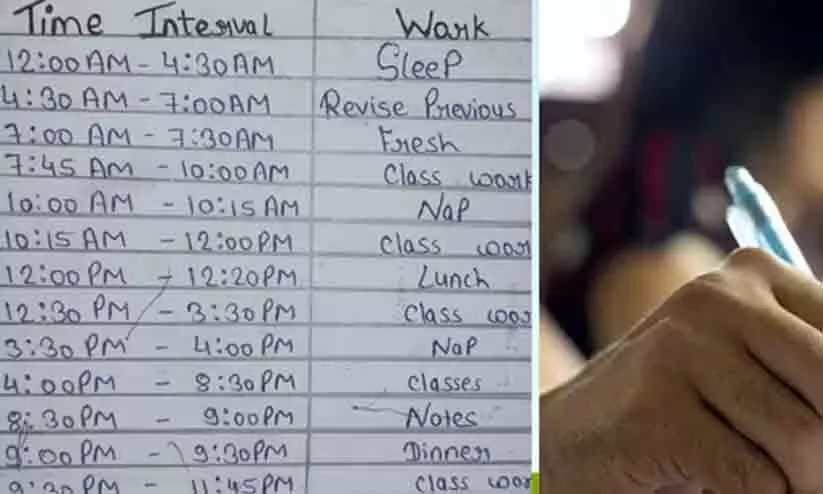 Time Interval Work
12:00 AM - 4:30 AM Sleep
4:30 AM - 7:00 AM Revise Previous
7:00 AM - 7:30 AM Fresh
7:45 AM - 10:00 AM Class work
10:00 AM - 10:15 AM Nap
10:15 AM - 12:00 PM Class wor
12:00 PM - 12:20 PM Lunch
12:30 PM - 3:30 PM Class wor
3:30 PM - 4:00 PM Nap
4:00 PM - 8:30 PM Classes
8:30 PM - 9:00 PM Notes
9:00 PM - 9:30 PM Dinner
9:30 PM - 11:45 PM Class wor